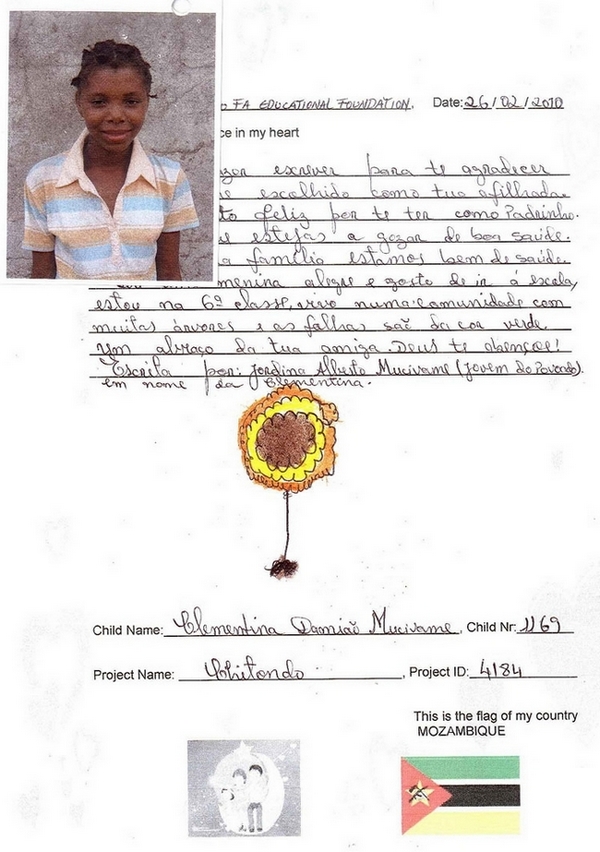 FA EDUCATIONAL FOUNDATION. Date: 26/02/2010
ce in my heart
escrever para te agradecer
escolhido como tua afilhada.
feliz por te ter como Padrinho.
estejas a gozar de boa saúde.
a família estamos bem de saúde.
menina alegre e gosto de ir á escola,
estou na 6ª classe, vivo numa comunidade com
muitas árvores e as folhas saõ da cor verde.
Um abraço da tua amiga. Deus te abençoe!
Escrita por: Jordina Alberto Mucivame (jovem do
em nome da Clementina.
Child Name: Clementina Damiaõ Mucivame, Child Nr: 1169
Project Name: Chitondo, Project ID: 4184
This is the flag of my country
MOZAMBIQUE